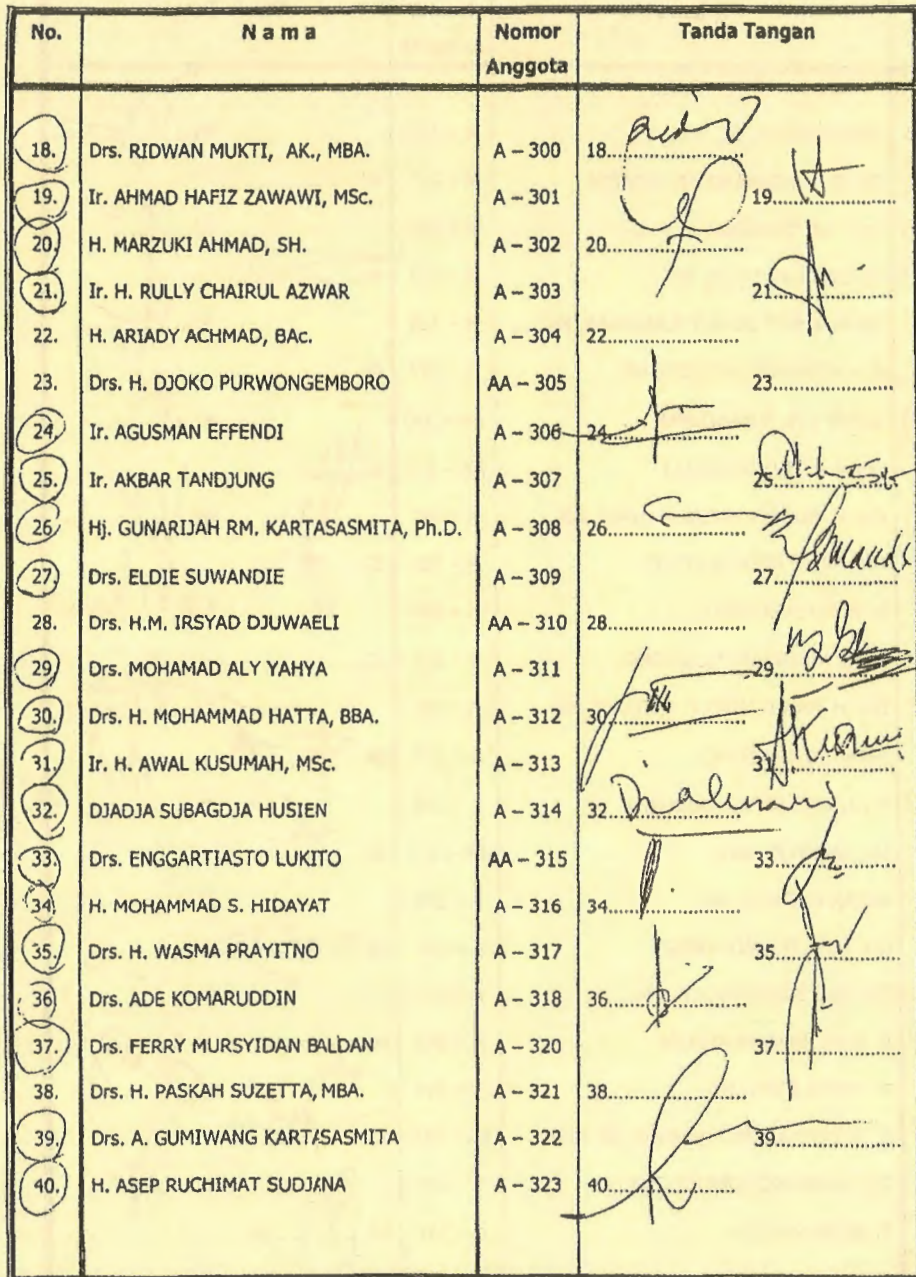 No. Nama Nomor Anggota Tanda Tangan
18. Drs. RIDWAN MUKTI, AK., MBA. A – 300 18
19. Ir. AHMAD HAFIZ ZAWAWI, MSc. A – 301 19
20. H. MARZUKI AHMAD, SH. A – 302 20
21. Ir. H. RULLY CHAIRUL AZWAR A – 303 21
22. H. ARIADY ACHMAD, BAc. A – 304 22
23. Drs. H. DJOKO PURWONGEMBORO AA – 305 23
24. Ir. AGUSMAN EFFENDI A – 306 24
25. Ir. AKBAR TANDJUNG A – 307 25
26. Hj. GUNARIJAH RM. KARTASASMITA, Ph.D. A – 308 26
27. Drs. ELDIE SUWANDIE A – 309 27
28. Drs. H.M. IRSYAD DJUWAELI AA – 310 28
29. Drs. MOHAMAD ALY YAHYA A – 311 29
30. Drs. H. MOHAMMAD HATTA, BBA. A – 312 30
31. Ir. H. AWAL KUSUMAH, MSc. A – 313 31
32. DJADJA SUBAGDJA HUSIEN A – 314 32
33. Drs. ENGGARTIASTO LUKITO AA – 315 33
34. H. MOHAMMAD S. HIDAYAT A – 316 34
35. Drs. H. WASMA PRAYITNO A – 317 35
36. Drs. ADE KOMARUDDIN A – 318 36
37. Drs. FERRY MURSYIDAN BALDAN A – 320 37
38. Drs. H. PASKAH SUZETTA, MBA. A – 321 38
39. Drs. A. GUMIWANG KARTASASMITA A – 322 39
40. H. ASEP RUCHIMAT SUDJANA A – 323 40